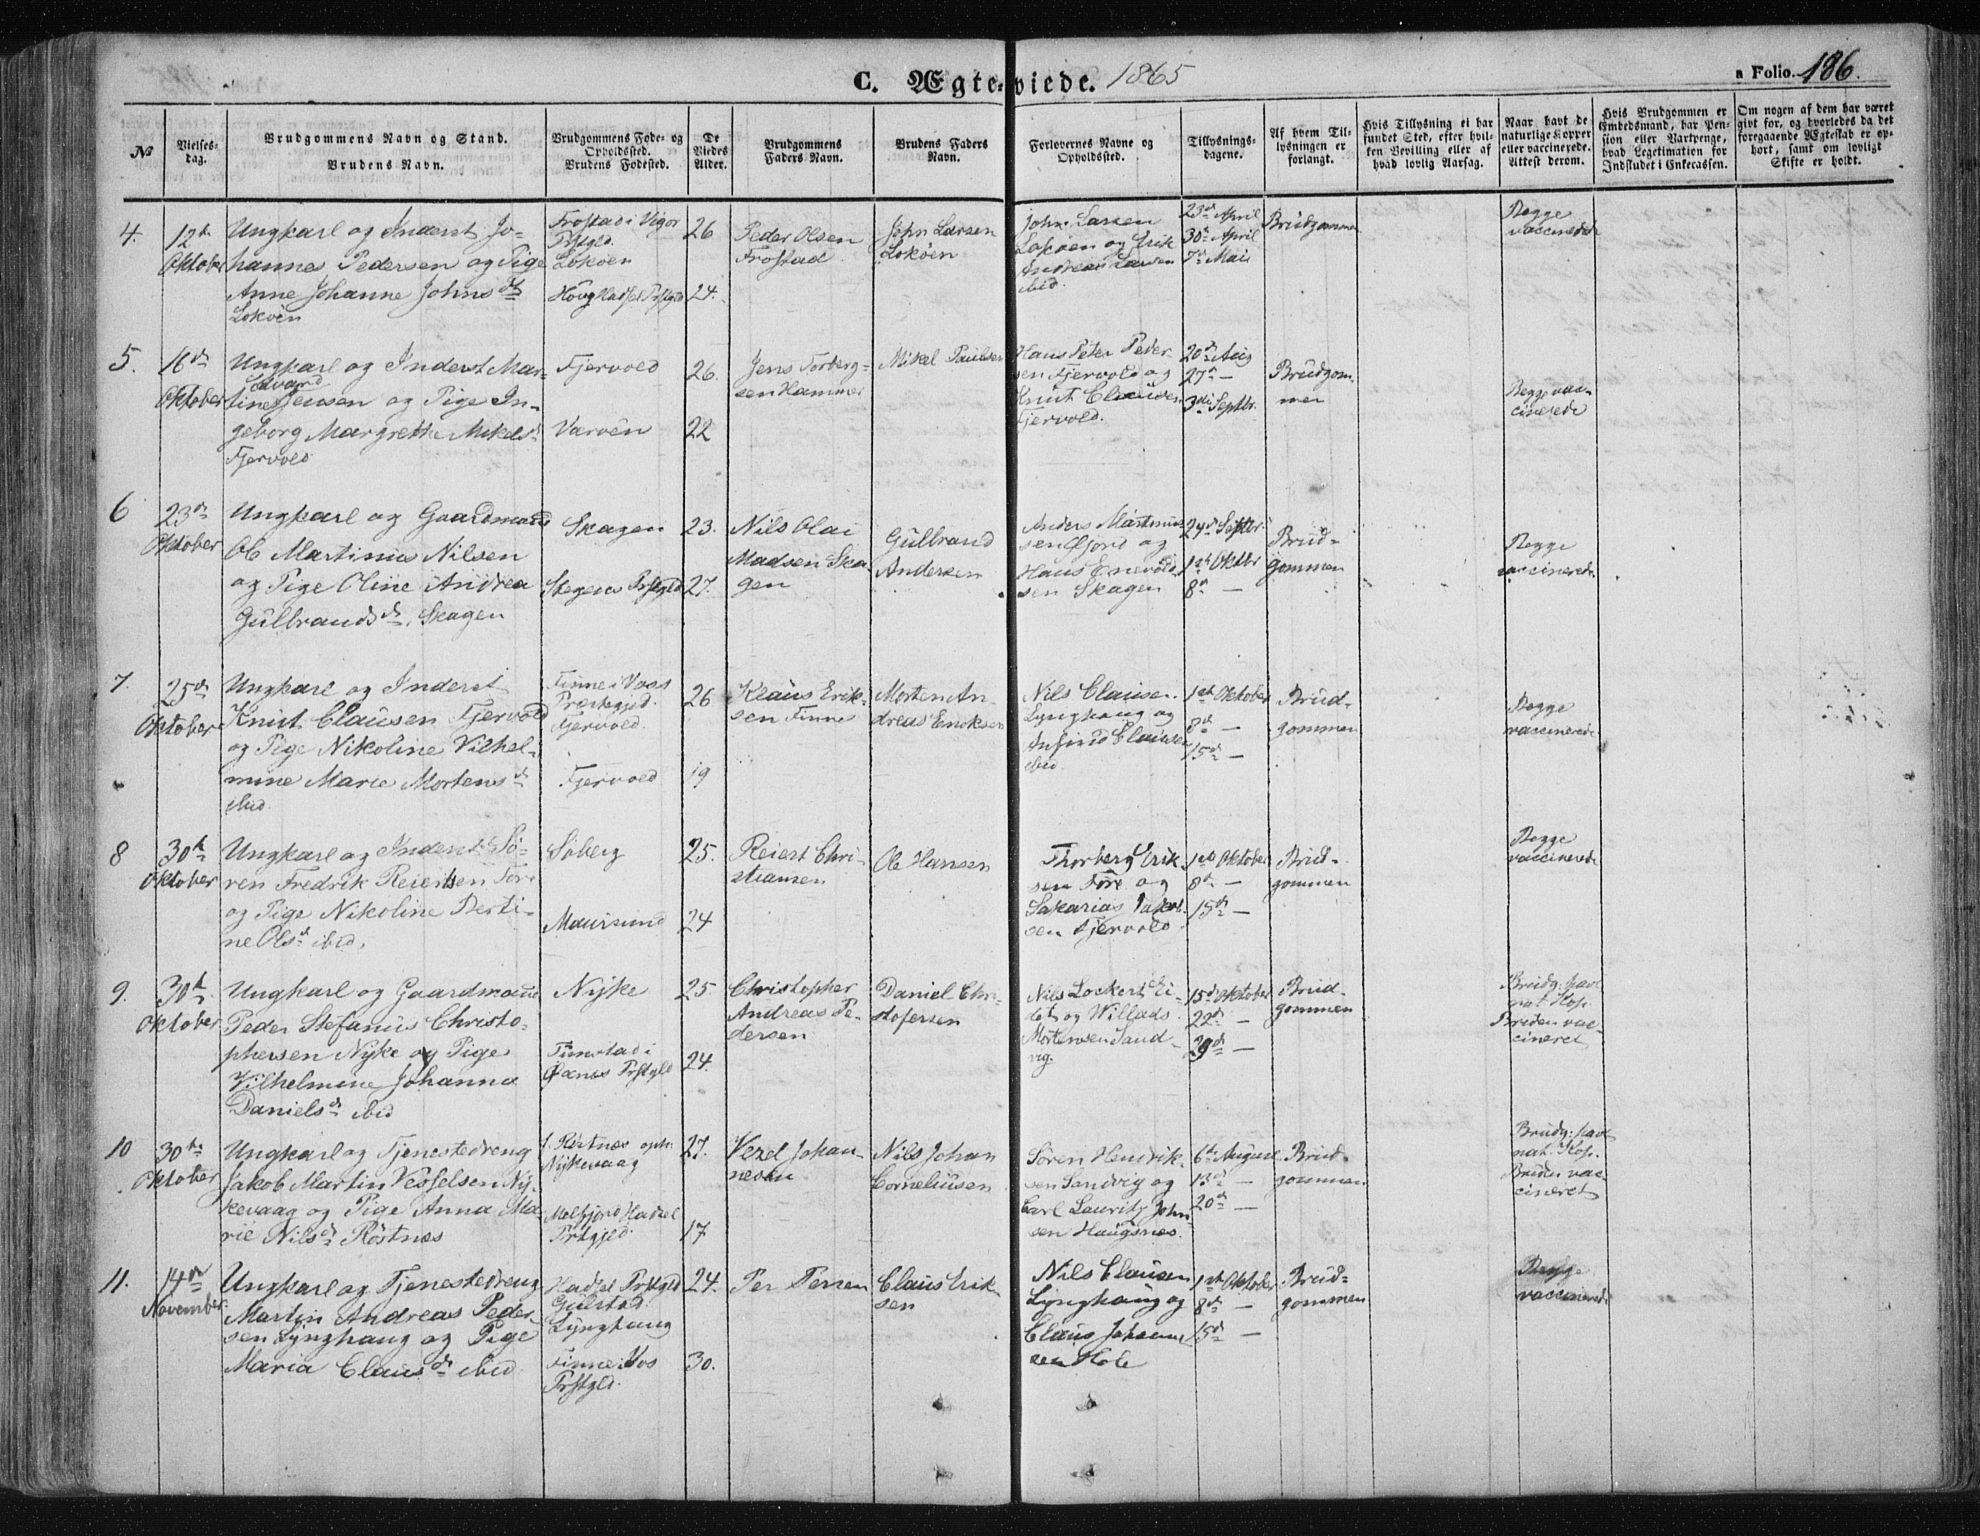 C. Ægteviede. 1865
a Folio. 186.
No
Vielses-
dag.
Brudgommens Navn og Stand.
Brudens Navn.
Brudgommens Føde- og
Opholdssted.
Brudens Fødested.
De
Viedes
Alder.
Brudgommens
Faders Navn.
Brudens Faders
Navn.
Forlovernes Navne og
Opholdssted.
Tillysnings-
dagene.
Af hvem Til-
lysningen er
forlangt.
Hvis Tillysning ei har
fundet Sted, efter hvil-
ken Bevilling eller af
hvad lovlig Aarsag.
Naar havt de
naturlige Kopper
eller vaccinerede.
Attest derom.
Hvis Brudgommen er
Embedsmand, har Pen-
sion eller Vartpenge,
hvad Legetimation for
Indskudet i Enkecassen.
Om nogen af dem har været
gift før, og hvorledes da det
foregaaende Ægteskab er op-
hørt, samt om lovligt
Skifte er holdt.
4.
12te
Oktober
Ungkarl og Inderst Jo-
hannes Pedersen og Pige
Anne Johanne Johnsdr
Lokøen
Frøstad i Vigør
Prstgld.
Lokøen
Høug Hadsel Prstgld
26
24.
Peder Olsen
Frøstad
John Larsen
Lokøen
John Larsen
Lokøen og Erik
Andreas Larsen
ibid.
23de April
30te April
7de Mai
Brudgommen
Begge
vaccinerede
5.
16de
Oktober
Ungkarl og Inderst Mar-
Edvard
tines Jensen og Pige In-
geborg Margrethe Mikelsdr
Fjervold
Fjervold
Varøen
26.
22
Jens Torberg-
sen Hammer
Mikel Paulsen
Hans Peter Peder-
sen Fjervold og
Knut Clausen
Fjervold.
20de Aug
27de —
3die Septbr.
Brudgom-
men
Begge vac-
cinerede
6
23de
Oktober
Ungkarl og Gaardmand
Ole Martinus Nilsen
og Pige Oline Andrea
Gulbrandsdr. Skagen
Skagen
Stegens Prstgld
23.
27.
Nils Olai
Madsen Ska-
gen
Gulbrand
Andersen
Anders Martinus-
sen Fjord og
Hans Enevold-
sen Skagen
24de Septbr.
1ste Oktbr
8de —
Brud-
gommen
Begge
vaccinerede
7.
25de
Oktober
Ungkarl og Inderst
Knut Clausen Fjervold
og Pige Nikoline Vilhel-
mine Marie Mortensdr
ibid.
Finne i Voss
Præstegjeld.
Fjervold.
Fjervold
26
19
Klaus Erik-
sen Finne
Morten An-
dreas Eriksen
Nils Clausen
Lynghaug og
Anfind Clausen
ibid.
1ste Oktober
8de —
15de —
Brud-
gommen
Begge
vaccinerede
8
30te
Oktober
Ungkarl og Inderst Sø-
ren Fredrik Reiertsen Føre
og Pige Nikoline Berti-
ne Olsdr ibid.
Søberg
Maursund
25.
24
Reiert Chri-
stiansen
Ole Hansen
Thorberg Erik
sen Føre og
Sakarias Jakob-
sen Fjervold
1ste Oktober
8de —
15de —
Brud-
gommen
Begge
vaccinerede
9.
30te
Oktober
Ungkarl og Gaardmand
Peder Stefanus Christo-
phersen Nyke og Pige
Vilhelmine Johanna
Danielsdr ibid
Nyke
Finnstad i
Øxnes Prstgld
25
24.
Christopher
Andreas Pe-
dersen
Daniel Chri-
stofersen
Nils Lockert Ei-
det og Willads
Mortensen Sand-
vig.
15de Oktober
22de —
29de —
Brud-
gommen
Brudg: havt
nat. Kop.
Bruden vac-
cineret
10
30te
Oktober
Ungkarl og Tjenestedreng
Jakob Martin Vesselsen Ny-
kevaag og Pige Anna Ma-
rie Nilsdr Røstnæs
f. Røstnæs oph.
Nykevaag
Melfjord Hadsel
Prstgjeld.
27.
17
Vezel Johan-
nesen
Nils Johan
Corneliusen
Søren Henrik-
sen Sandvig og
Carl Lauritz John-
sen Haugsnæs.
6te August
13de —
20de —
Brud-
gommen
Brudg: havt
nat. Kop.
Bruden vac-
cineret
11.
14de
November
Ungkarl og Tjenestedreng
Martin Andreas Peder-
sen Lynghaug og Pige
Maria Clausdr ibid
Hadsel Prstgld
Gulstad
Lynghaug
Finne i Vos
Prstgld.
24.
30.
Per Persen
Claus Erik-
sen
Nils Clausen
Lynghaug og
Claus Johanne-
sen Hole
1ste Oktober
8de —
15de —
Brud-
gommen
Begge
vaccinerede